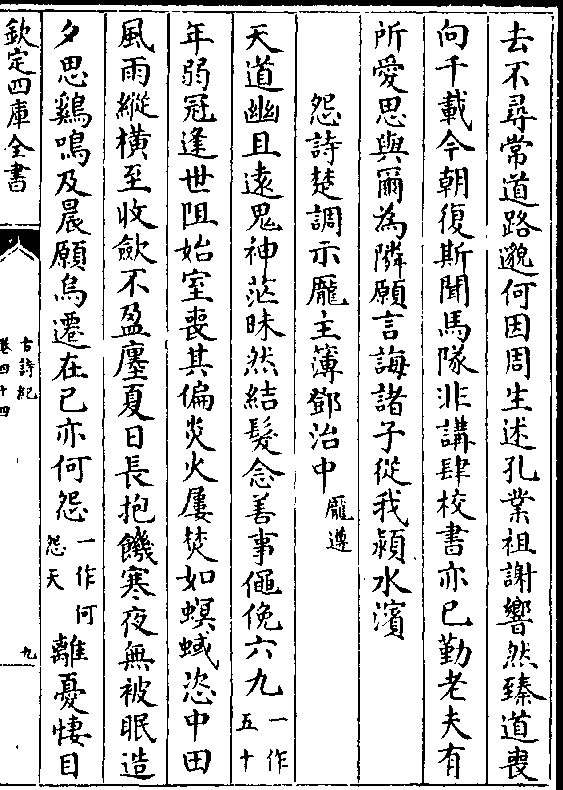 去不尋常道路邈何因周生述孔業祖謝響然臻道喪
向千載今朝復斯聞馬隊非講肆校書亦已勤老夫有
所愛思與爾為隣願言誨諸子從我潁水濱
怨詩楚調示龐主簿鄧治中龐遵
天道幽且遠鬼神茫昧然結髮念善事僶俛六九一作五十
年弱冠逢世阻始室喪其偏炎火屢焚如螟蜮恣中田
風雨縱橫至收斂不盈廛夏日長抱饑寒夜無被眠造
夕思鷄鳴及晨願烏遷在己亦何怨一作何怨天離憂悽目
欽定四庫全書
古詩紀
卷四十四
九